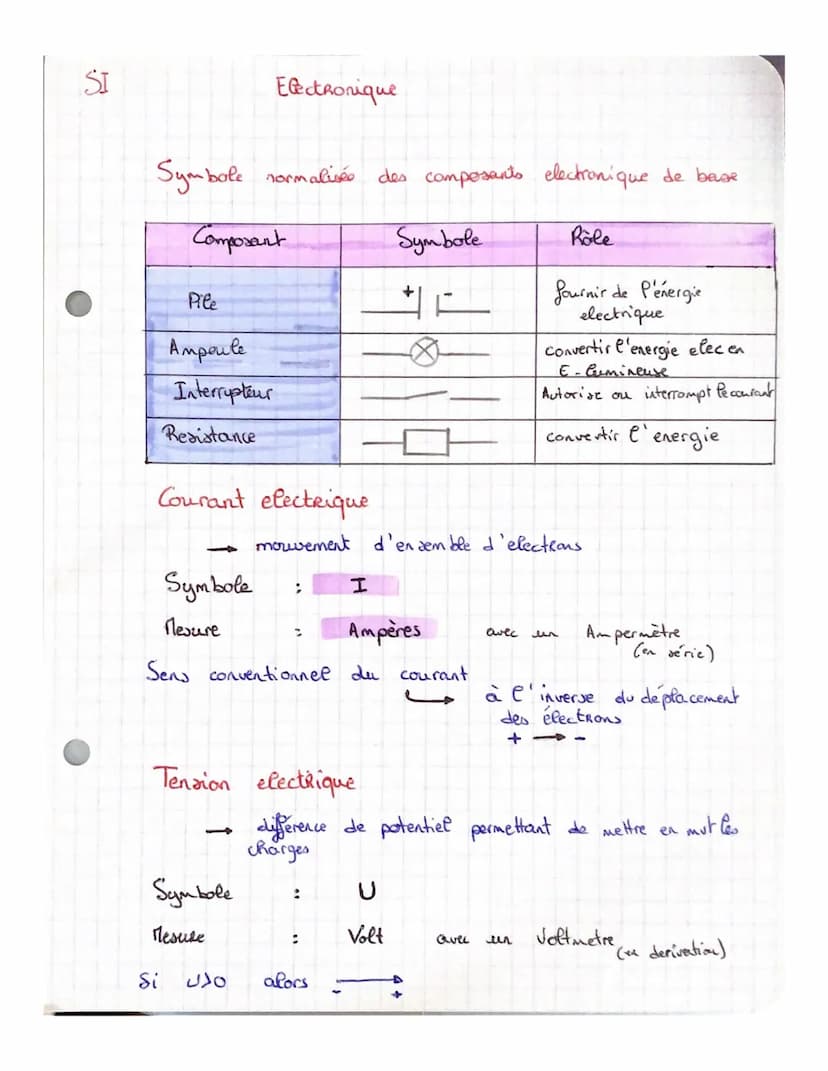 SI Electronique
Symbole normalisée des composants electronique de base
Composant Symbole Rôle
Pile + - fournir de l'énergie
electrique
Ampoule convertir l'energie elec en
E - lumineuse
Interrupteur Autorise ou interrompt le courant
Resistance convertir l'energie
Courant electrique
→ mouvement d'ensemble d'electrons
Symbole : I
Mesure : Ampères avec un Ampermètre
(en série)
Sens conventionnel du courant
à l'inverse du déplacement
des électrons
+ → -
Tension electrique
→ différence de potentiel permettant de mettre en mvt les
charges
Symbole : U
Mesure : Volt avec un Voltmetre (en derivation)
Si U>0 alors →
- +